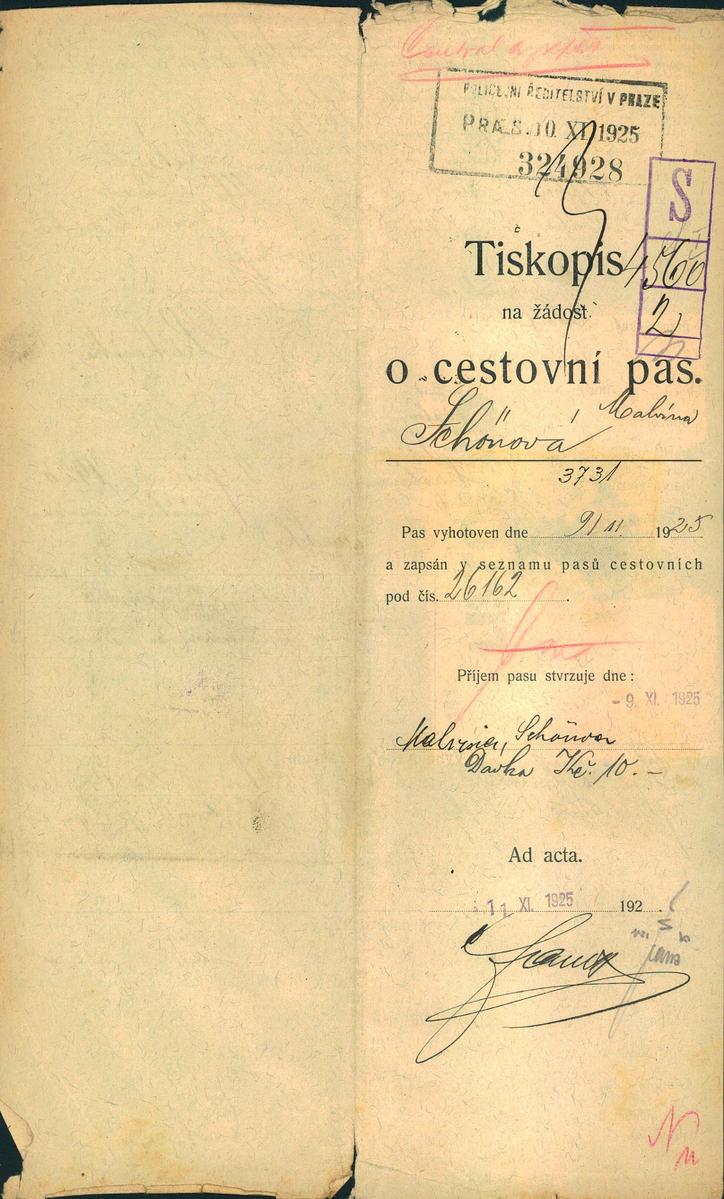 POLICEJNÍ ŘEDITELSTVÍ V PRAZE
PRAES. 10 XI 1925
324928
S
4560
2
Tiskopis
na žádost
o cestovní pas.
Schönová Malvína
3731
Pas vyhotoven dne 9/11. 1925
a zapsán v seznamu pasů cestovních
pod čís. 26162
Příjem pasu stvrzuje dne:
- 9. XI. 1925
Malvina Schönova
Davka Kč. 10.-
Ad acta.
11 XI. 1925 192